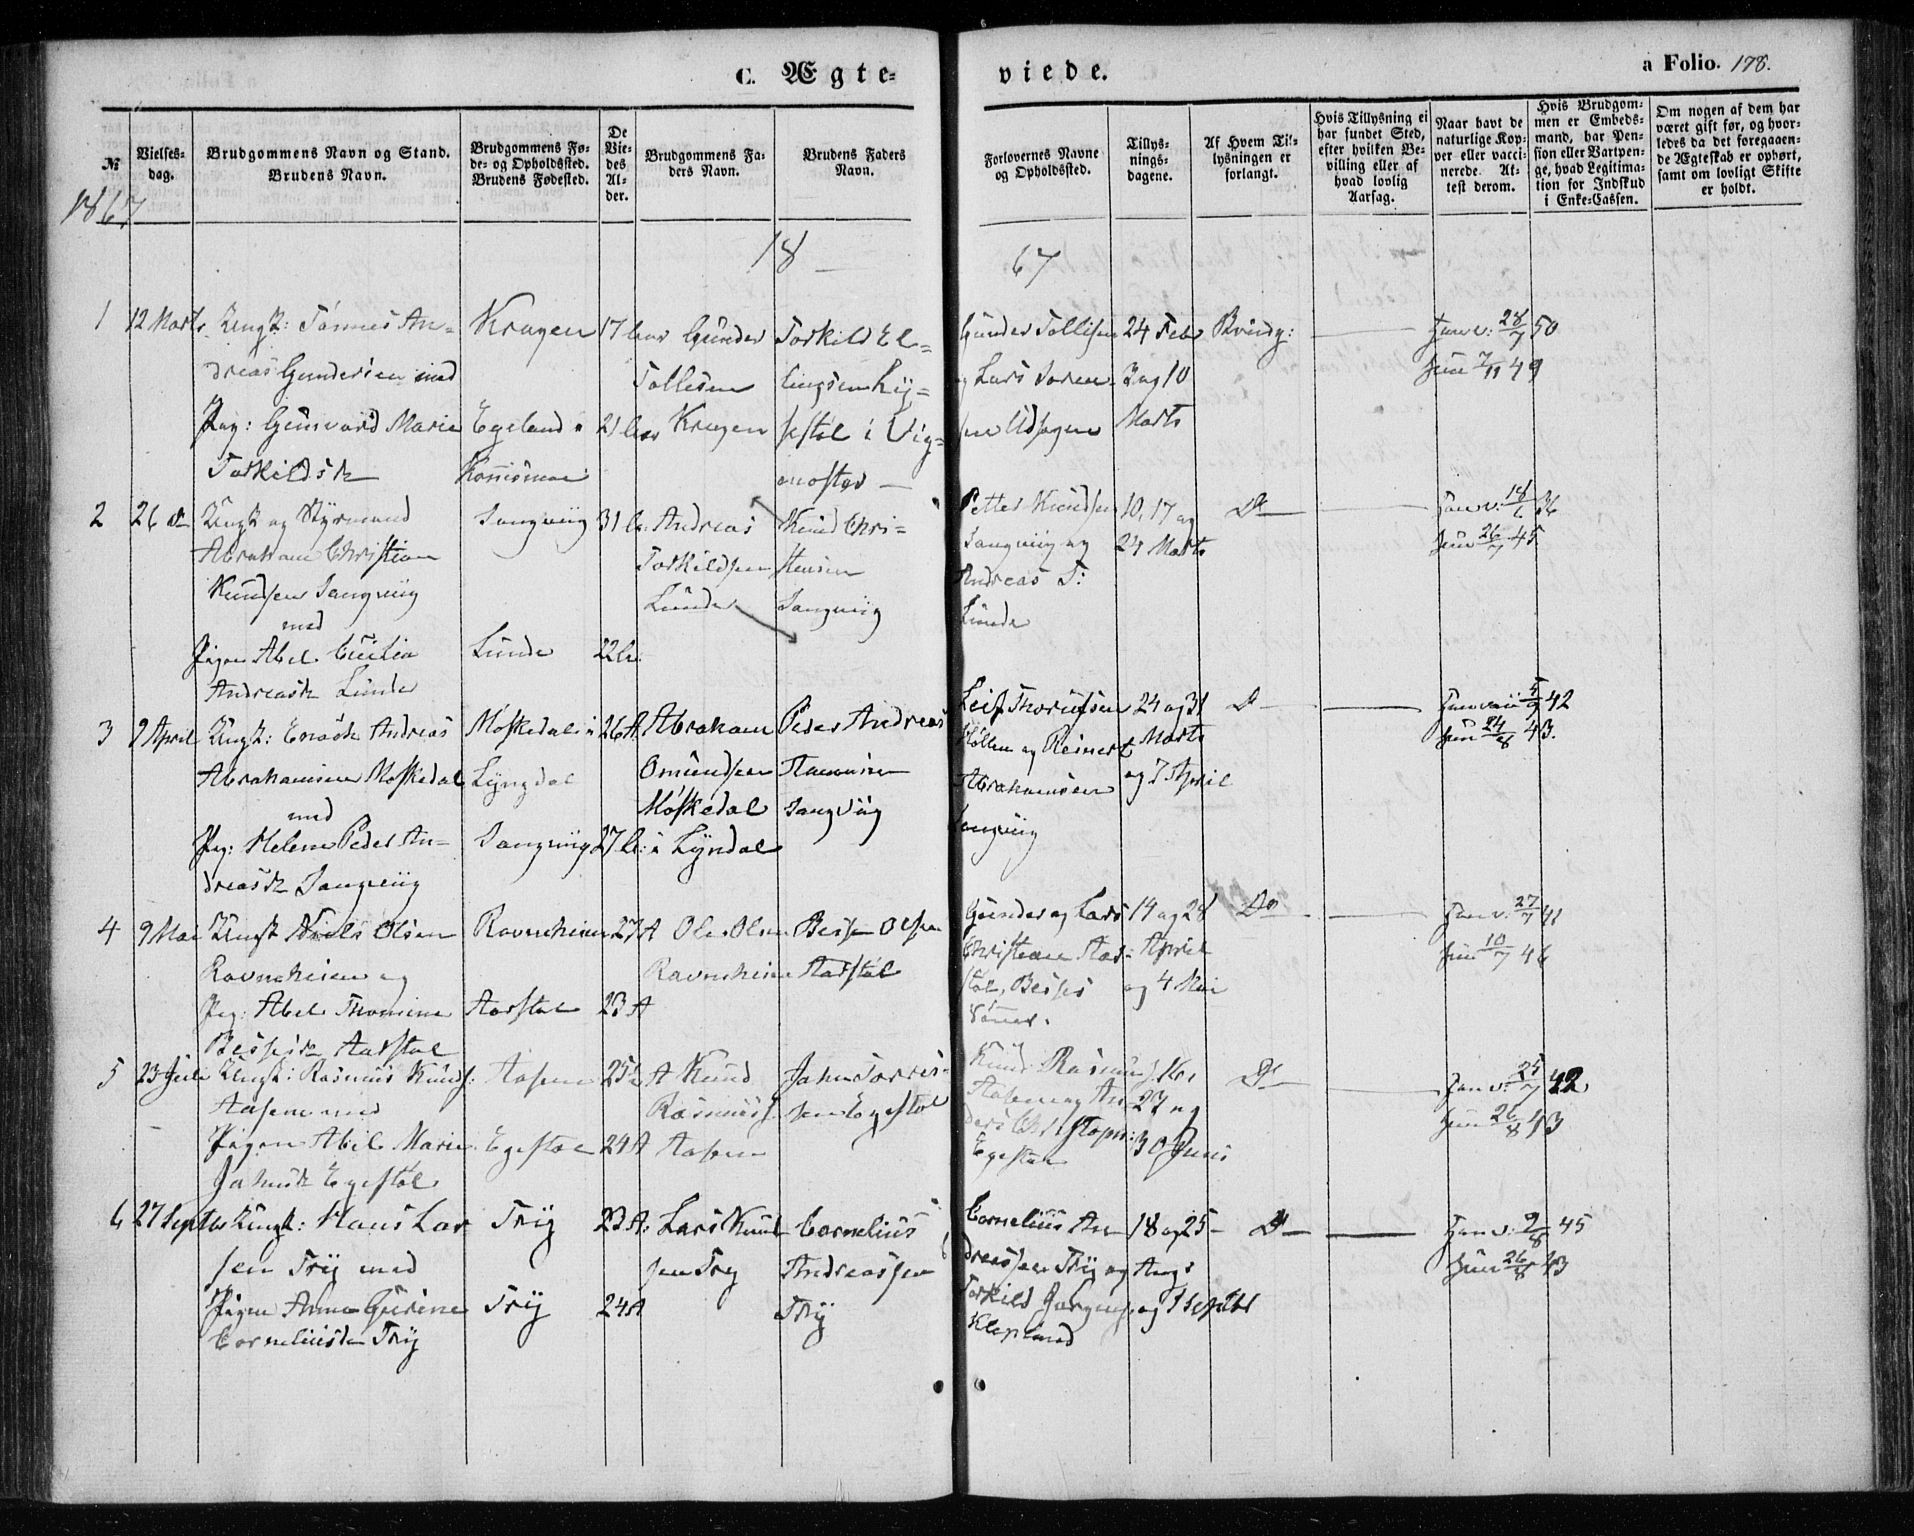 C. Ægte-
viede.
a Folio. 178.
№
Vielses-
dag.
Brudgommens Navn og Stand.
Brudens Navn.
Brudgommens Fø-
de- og Opholdssted.
Brudens Fødested.
De
Vie-
des
Al-
der.
Brudgommens Fa-
ders Navn.
Brudens Faders
Navn.
Forlovernes Navne
og Opholdssted.
Tillys-
nings-
dagene.
Af Hvem Til-
lysningen er
forlangt.
Hvis Tillysning ei
har fundet Sted,
efter hvilken Be-
villing eller af
hvad lovlig
Aarsag.
Naar havt de
naturlige Kop-
per eller vacci-
nerede. At-
test derom.
Hvis Brudgom-
men er Embeds-
mand, har Pen-
sion eller Vartpen-
ge, hvad Legitima-
tion for Indskud
i Enke-Cassen.
Om nogen af dem har
været gift før, og hvor-
ledes da det foregaaen-
de Ægteskab er ophørt,
samt om lovligt Skifte
er holdt.
1867
18
67
1
12 Marts
Ungk: Tønnes An-
dreas Gundersen med
Pig: Gunvord Marie
Torkildsd
Kragen
Egeland i
17
21
Gunder
Tollesen
Kragen
Torkild El-
lingsen Ly-
støl i Vig-
mostad
Gunder Tollisen
og Lars
24 Febr
3 og 10
Marts
Brudg:
Ham v: 28/7 50
Hun 7/11 49
2
26 d
Ungk og Styrmand
Abraham Christian
Knudsen Sangviig
med
Pigen Abel Cecilia
Andreasd Lunde
Sangviig
Lunde
31
22
Andreas
Torkildsen
Lunde
Knud Chri-
stensen
Sangviig
Petter Knudsen
Sangviig og
Andreas T:
Lunde
10, 17 og
24 Marts
D
Ham v: 18/6 36
Hun 26/7 45
3
9 April
Ungk: Enoch Andreas
Abrahamsen Møskedal
med
Pig: Helene Peder An-
dreasd Sangviig
Møskedal i
Lyngdal
Sangviig
26 A
27
Abraham
Omundsen
Møskedal
i Lyndal
Peder Andreas
Sangviig
Leif
Høllen og Reinert
Abrahamsen
Sangviig
24 og 31
Marts
og 7 April
D
5/9 42
Hun 24/8 43.
4
9 Mai
Ungk Niels Olsen
Ravneheien og
Pig: Abel Thomine
Aarstøl
Ravneheien
Aarstøl
27 A
23 A
Ole Olsen
Ravneheien
Besse Olsen
Aarstøl
Gunder og Lars
Christian Aar-
støl, Besses
Sønner.
14 og 28
April
og 4 Mai
Do
Ham v: 27/7 41
Hun 10/7 46
5
23 Juli
Ungk: Rasmus Knuds:
Aasen med
Pigen Abel Marie
Egestøl
Aasen
Egestøl
25
24 A
Knud
Rasmuss.
Aasen
Jahn Torris-
sen Egestøl
Knud Rasmuss.
Aasen og An-
ders Christoph:
Egestøl
16,
23 og
30 Juni
D
Ham v: 25/7 42
Hun 26/8 43
6
27 Septbr
Ungk: Hans Lar
sen Try med
Pigen Anne Gurine
Corneliusdr Try
Try
Try
23 A:
24 A
Lars Knud
sen Try
Cornelius
Andreassen
Try
Cornelius An
dreassen Try og
Torkild Jørgens.
Klepland
18 og 25
Aug:
og 1 Septbr
D
Ham v: 9/8 45
Hun 26/8 43